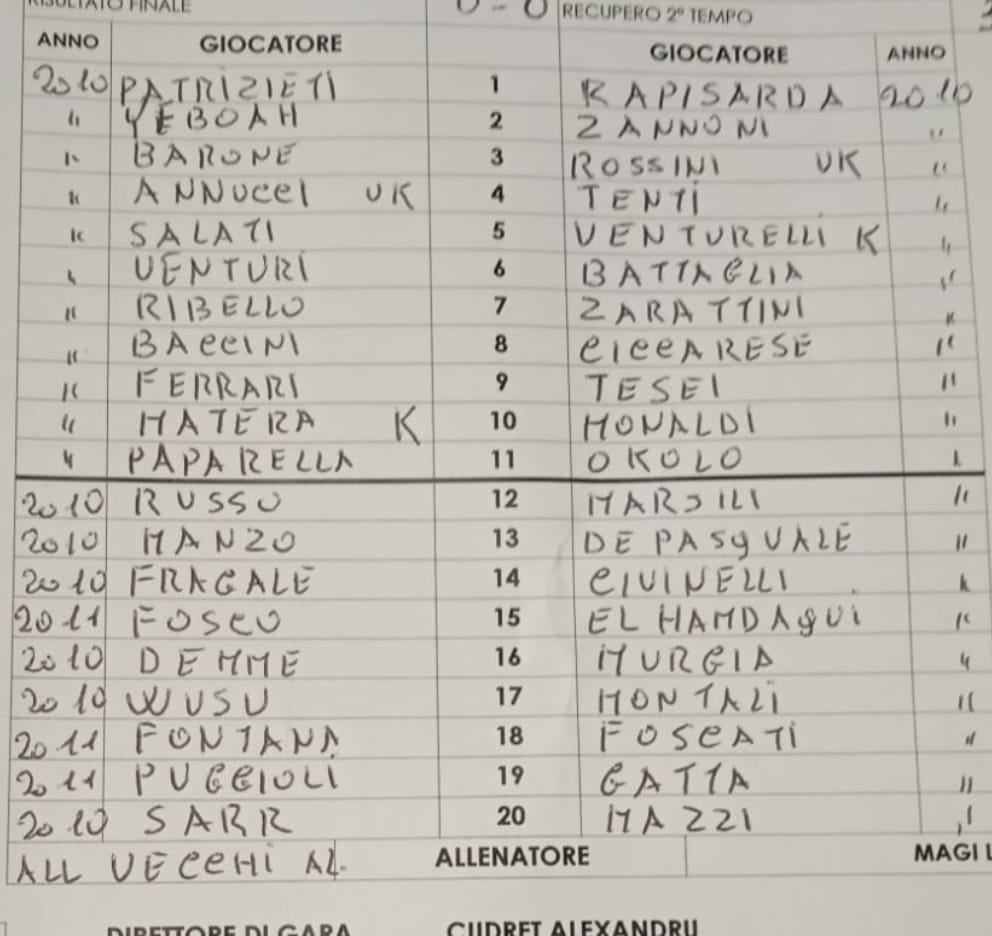 RISULTATO FINALE 0 - 0 RECUPERO 2° TEMPO
ANNO GIOCATORE GIOCATORE ANNO
2010 PATRIZIETI 1 RAPISARDA 2010
" YEBOAH 2 ZANNONI "
" BARONE 3 ROSSINI VK "
" ANNUCCI VK 4 TENTI "
" SALATI 5 VENTURELLI K "
" VENTURI 6 BATTAGLIA "
" RIBELLO 7 ZARATTINI "
" BACCINI 8 CICCARESE "
" FERRARI 9 TESEI "
" MATERA K 10 MONALDI "
" PAPARELLA 11 OKOLO "
2010 RUSSO 12 MARSILI "
2010 MANZO 13 DE PASQUALE "
2010 FRAGALE 14 CIVINELLI "
2011 FOSCO 15 EL HAMDAQUI "
2010 DEMME 16 MURGIA "
2010 WUSU 17 MONTALI "
2011 FONTANA 18 FOSCATI "
2011 PUGGIOLI 19 GATTA "
2010 SARR 20 MAZZI "
ALL VECCHI AL. ALLENATORE MAGI L
DIRETTORE DI GARA CUDRET ALEXANDRU